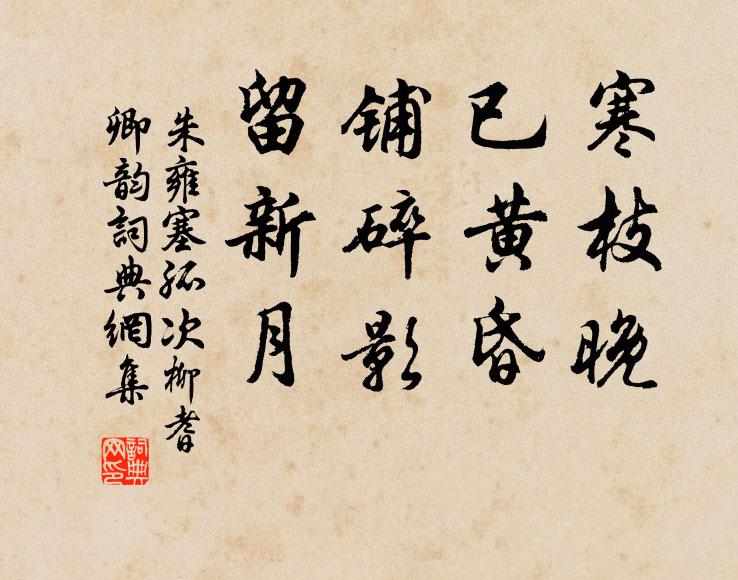 寒枝晚
已黄昏
铺碎影
留新月
朱雍塞孤次柳耆
卿韵词典網集
詞典
网印